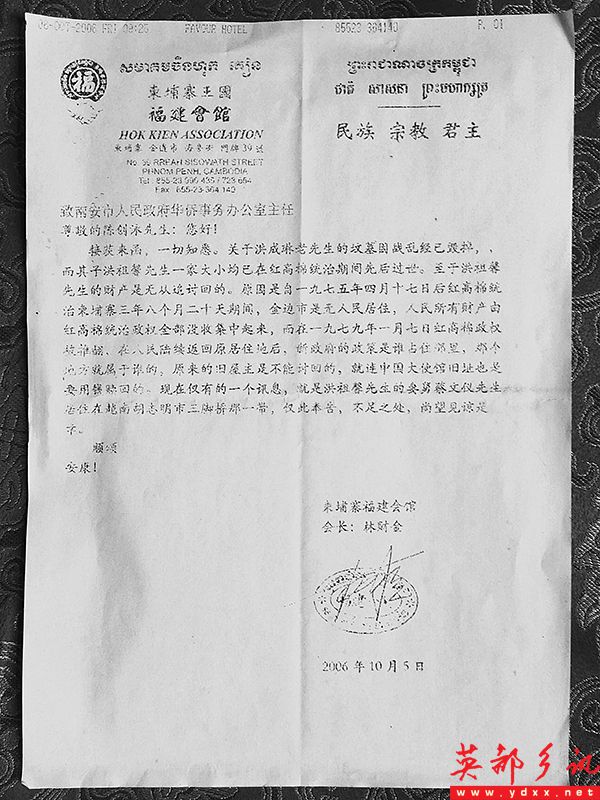 2006 FRI 08:25 FAVOUR HOTEL 85523 364140 P. 01
សមាគមចិនហុក គៀន
柬埔寨王國
福建會館
HOK KIEN ASSOCIATION
柬埔寨 金边市 門牌39號
PHNOM PENH, CAMBODIA
Fax: 855-23-364 140
ព្រះរាជាណាចក្រកម្ពុជា
ជាតិ សាសនា ព្រះមហាក្សត្រ
民族 宗教 君主
福
致南安市人民政府华侨事务办公室主任
尊敬的陈创涂先生：您好！
接获来函，一切知悉。关于洪成琳老先生的坟墓因战乱经已毁掉，、
而其子洪祖馨先生一家大小均已在红高棉统治期间先后过世。至于洪祖馨
先生的财产是无从追讨回的。原因是自一九七五年四月十七日后红高棉统
治柬埔寨三年八个月二十天期间，金边市是无人民居住，人民所有财产由
红高棉统治政权全部没收集中起来，而在一九七九年一月七日红高棉政权
被推翻、在人民陆续返回原居住地后，新政府的政策是谁占住那里，那个
地方就属于谁的。原来的旧屋主是不能讨回的，就连中国大使馆旧址也是
要用钱赎回的。现在仅有的一个讯息，就是洪祖馨先生的妻舅蔡文仪先生
居住在越南胡志明市三脚桥那一带，仅此奉告，不足之处，尚望见谅是
幸。
顺颂
安康！
柬埔寨福建会馆
会长：林财金
2006 年 10 月 5 日
英都乡讯
www.ydxx.net